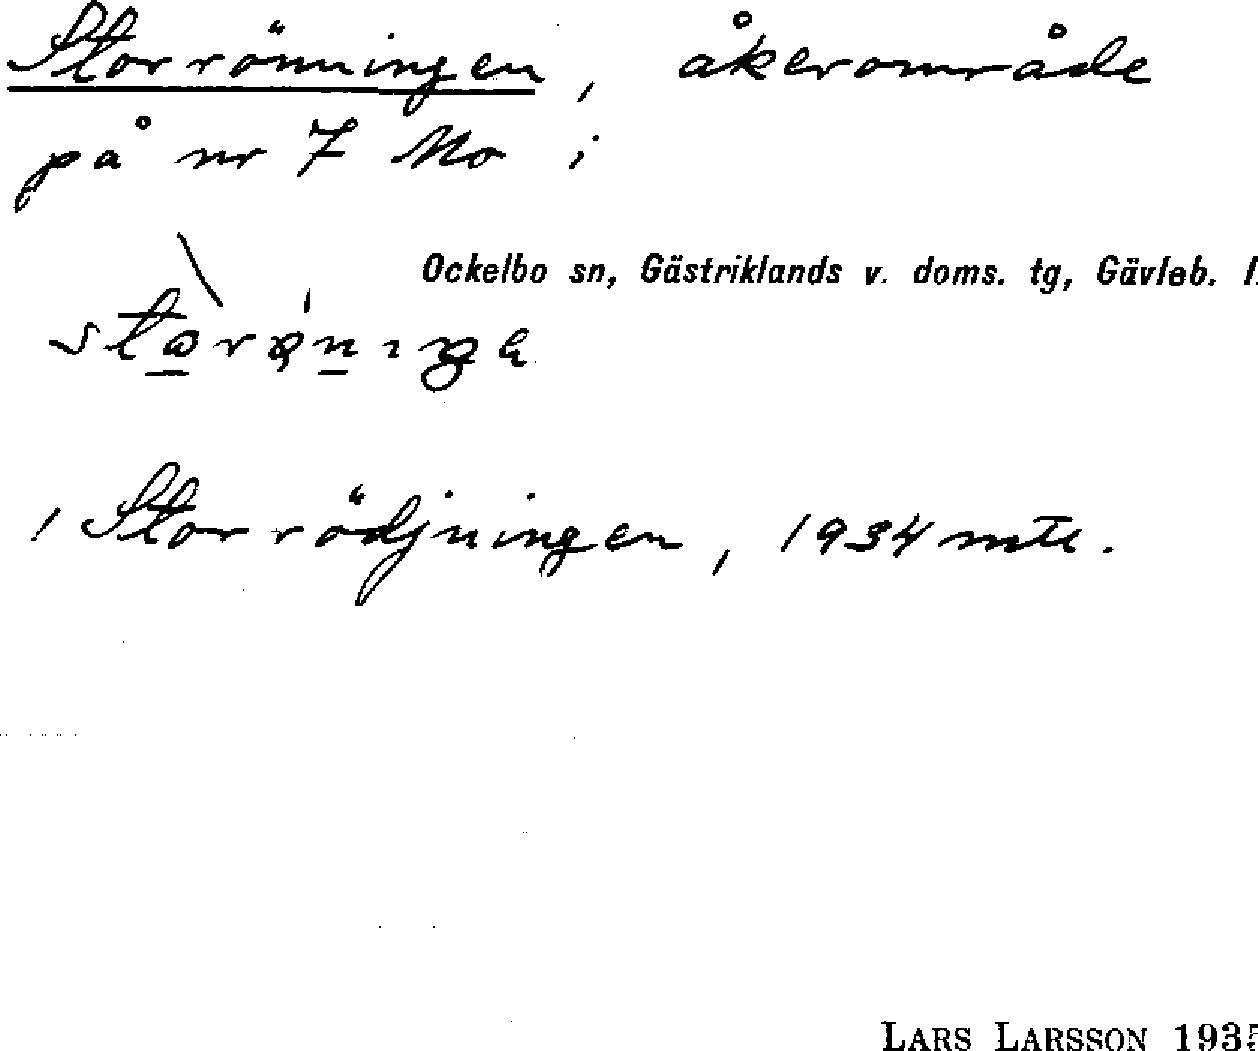 Storrönningen, åkerområde
på nr 7 Mo i
Ockelbo sn, Gästriklands v. doms. tg, Gävleb. l.
/ Storrödjningen, 1934 mtl.
LARS LARSSON 1935